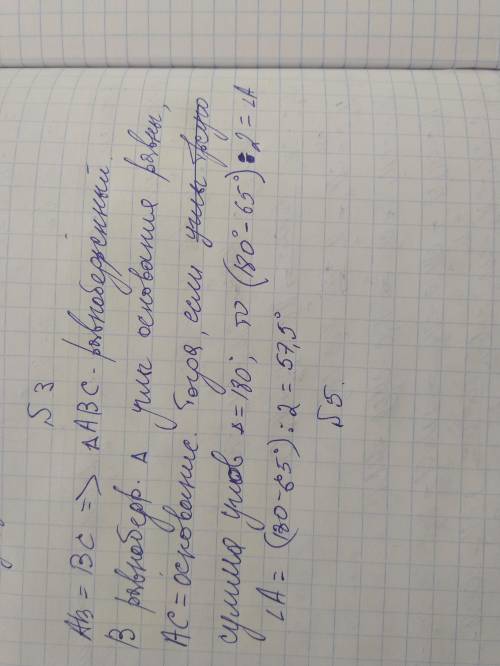 №3
AB = BC => △ABC - равнобедренный
В равнобедр. △ углы основания равны,
AC = основание. Тогда, если углы
сумма углов △ = 180°, то (180° - 65°) : 2 = ∠A
∠A = (180 - 65°) : 2 = 57,5°
№5.